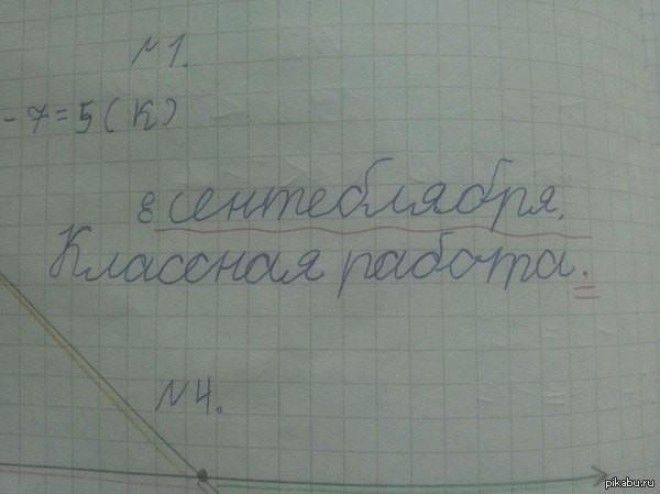 №1.
-7=5(к)
8 сентеблября.
Классная работа.
№4.
pikabu.ru